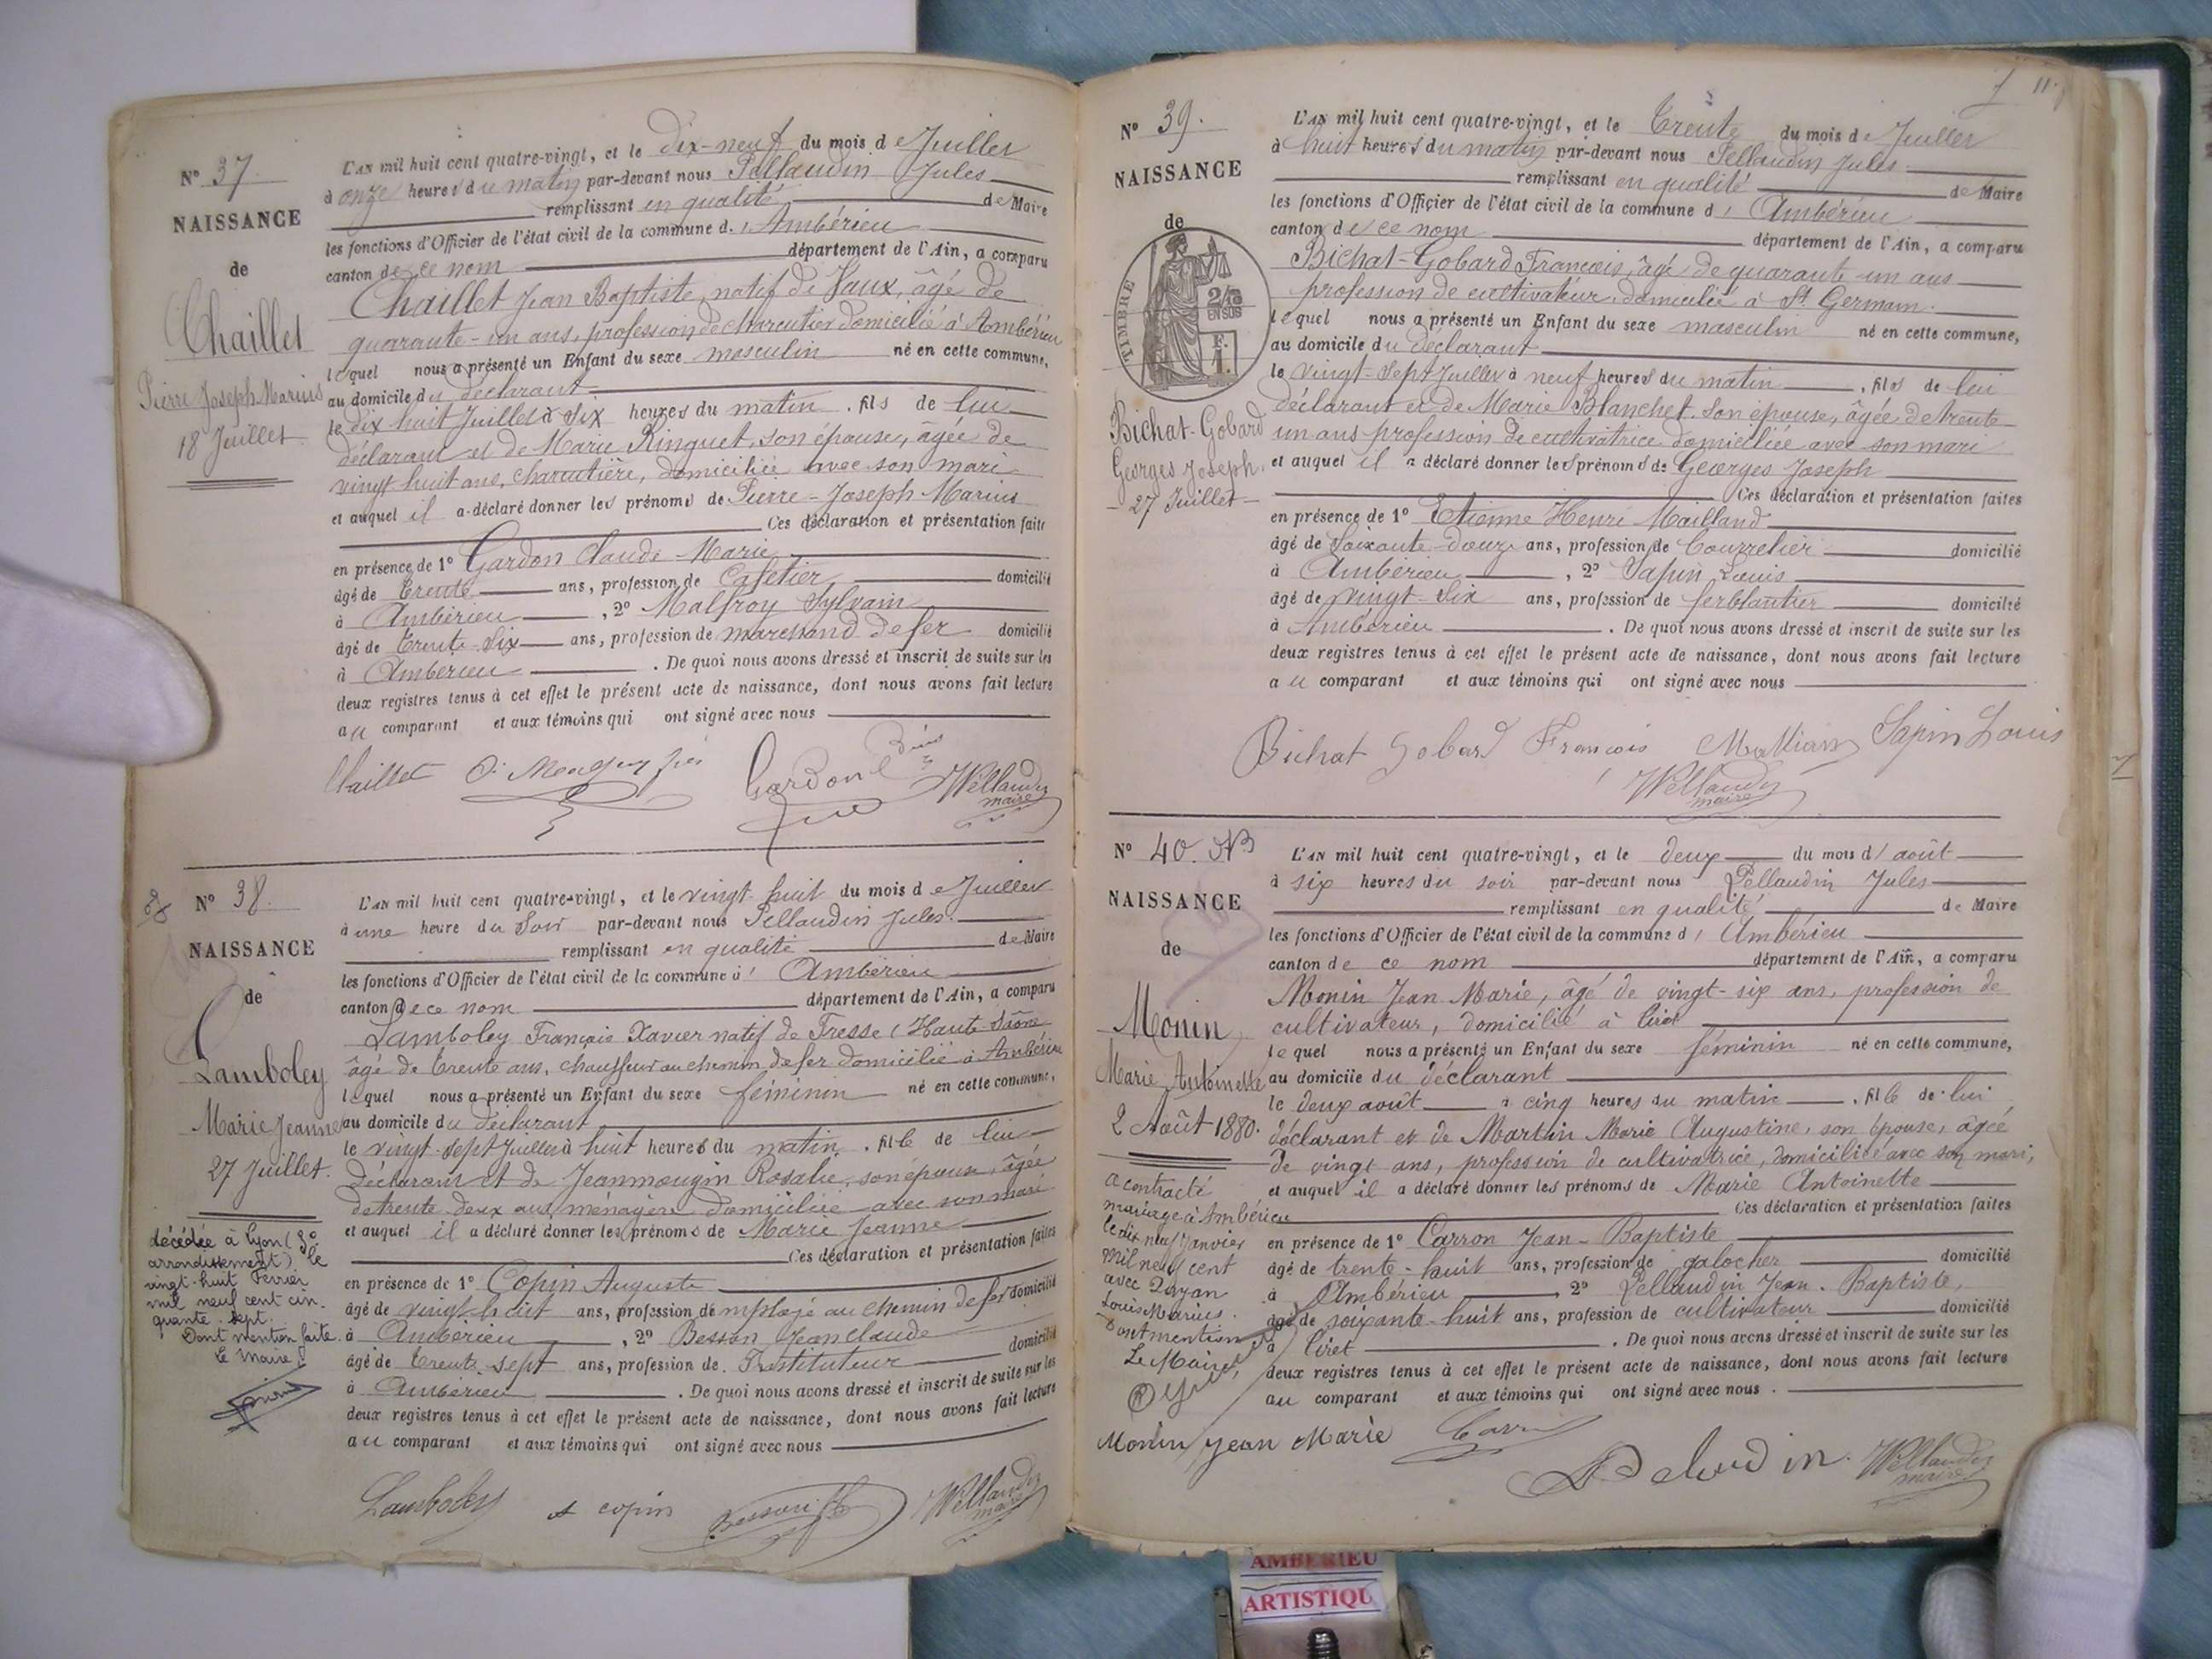 N° 37.
NAISSANCE
de
Chaillet
Pierre Joseph Marius
18 Juillet
L'AN mil huit cent quatre-vingt, et le dix-neuf du mois de Juillet
à onze heures du matin par-devant nous Pellaudin Jules
remplissant en qualité de Maire
les fonctions d'Officier de l'état civil de la commune d'Ambérieu
canton de ce nom département de l'Ain, a comparu
Chaillet Jean Baptiste, natif de Vaux, âgé de
quarante-un ans, profession de charcutier domicilié à Ambérieu
lequel nous a présenté un Enfant du sexe masculin né en cette commune,
au domicile du déclarant
le dix huit Juillet à six heures du matin, fils de lui
déclarant et de Marie Ringuet, son épouse, âgée de
vingt huit ans, charcutière, domiciliée avec son mari
et auquel il a déclaré donner les prénoms de Pierre-Joseph-Marius
Ces déclaration et présentation faites
en présence de 1° Gardon Claude-Marie
âgé de trente ans, profession de Cafetier domicilié
à Ambérieu, 2° Malfroy Sylvain
âgé de trente-six ans, profession de marchand de fer domicilié
à Ambérieu. De quoi nous avons dressé et inscrit de suite sur les
deux registres tenus à cet effet le présent acte de naissance, dont nous avons fait lecture
au comparant et aux témoins qui ont signé avec nous
Chaillet Gardon Pellaudin
maire
N° 38.
NAISSANCE
de
Lamboley
Marie Jeanne
27 Juillet.
décédée à Lyon (3e
arrondissement) le
vingt-huit Février
mil neuf cent cin-
quante-sept.
Dont mention faite.
Le Maire
L'AN mil huit cent quatre-vingt, et le vingt-huit du mois de Juillet
à une heure du Soir par-devant nous Pellaudin Jules.
remplissant en qualité de Maire
les fonctions d'Officier de l'état civil de la commune d'Ambérieu
canton de ce nom département de l'Ain, a comparu
Lamboley François Xavier natif de Fresse (Haute-Saône
âgé de trente ans, chauffeur au chemin de fer domicilié à Ambérieu
lequel nous a présenté un Enfant du sexe féminin né en cette commune,
au domicile du déclarant
le vingt-sept Juillet à huit heures du matin, fille de lui
déclarant et de Jeanmougin Rosalie, son épouse, âgée
de trente-deux ans, ménagère domiciliée avec son mari
et auquel il a déclaré donner les prénoms de Marie Jeanne
Ces déclaration et présentation faites
en présence de 1° Copin Auguste
âgé de vingt-huit ans, profession de employé au chemin de fer domicilié
à Ambérieu, 2° Besson Jean Claude
âgé de trente sept ans, profession de Instituteur domicilié
à Ambérieu. De quoi nous avons dressé et inscrit de suite sur les
deux registres tenus à cet effet le présent acte de naissance, dont nous avons fait lecture
au comparant et aux témoins qui ont signé avec nous
Lamboley A copin Besson Pellaudin
maire
11.
N° 39.
NAISSANCE
de
TIMBRE
2/10
EN SUS
F.
1.
Bichat-Gobard
Georges Joseph.
27 Juillet
L'AN mil huit cent quatre-vingt, et le trente du mois de Juillet
à huit heures du matin par-devant nous Pellaudin Jules
remplissant en qualité de Maire
les fonctions d'Officier de l'état civil de la commune d'Ambérieu
canton de ce nom département de l'Ain, a comparu
Bichat-Gobard François, âgé de quarante-un ans
profession de cultivateur, domicilié à St Germain.
lequel nous a présenté un Enfant du sexe masculin né en cette commune,
au domicile du déclarant
le vingt-sept Juillet à neuf heures du matin, fils de lui
déclarant et de Marie Blanchet, son épouse, âgée de trente
un ans profession de cultivatrice domiciliée avec son mari
et auquel il a déclaré donner les prénoms de Georges Joseph
Ces déclaration et présentation faites
en présence de 1° Etienne Henri Mailland
âgé de soixante-douze ans, profession de bourrelier domicilié
à Ambérieu, 2° Sapin Louis
âgé de vingt-six ans, profession de ferblantier domicilié
à Ambérieu. De quoi nous avons dressé et inscrit de suite sur les
deux registres tenus à cet effet le présent acte de naissance, dont nous avons fait lecture
au comparant et aux témoins qui ont signé avec nous
Bichat Gobard François Sapin Louis
Pellaudin
maire
N° 40.
NAISSANCE
de
Monin
Marie Antoinette
2 Août 1880.
a contracté
mariage à Ambérieu
le dix neuf Janvier
mil neuf cent
avec
Louis Marius.
Dont mention
Le Maire,
L'AN mil huit cent quatre-vingt, et le deux du mois d'août
à six heures du soir par-devant nous Pellaudin Jules
remplissant en qualité de Maire
les fonctions d'Officier de l'état civil de la commune d'Ambérieu
canton de ce nom département de l'Ain, a comparu
Monin Jean Marie, âgé de vingt-six ans, profession de
cultivateur, domicilié à Tiret
lequel nous a présenté un Enfant du sexe féminin né en cette commune,
au domicile du déclarant
le deux août à cinq heures du matin, fille de lui
déclarant et de Martin Marie Augustine, son épouse, âgée
de vingt ans, profession de cultivatrice, domiciliée avec son mari,
et auquel il a déclaré donner les prénoms de Marie Antoinette
Ces déclaration et présentation faites
en présence de 1° Carron Jean-Baptiste
âgé de trente-huit ans, profession de galocher domicilié
à Ambérieu, 2° Pellaudin Jean-Baptiste,
âgé de soixante-huit ans, profession de cultivateur domicilié
à Tiret. De quoi nous avons dressé et inscrit de suite sur les
deux registres tenus à cet effet le présent acte de naissance, dont nous avons fait lecture
au comparant et aux témoins qui ont signé avec nous.
Monin Jean Marie Pellaudin
maire
AMBERIEU
ARTISTIQU